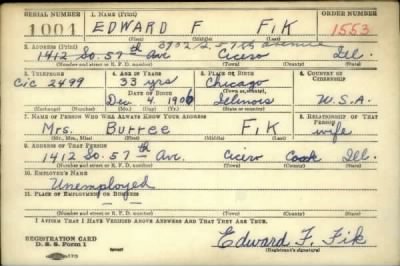 SERIAL NUMBER 1. NAME (Print) ORDER NUMBER
1001 EDWARD F FIK 1553
(First) (Middle) (Last)
2. ADDRESS (Print)
1412 So. 57th Av. Cicero Ill.
(Number and street or R. F. D. number) (Town) (County) (State)
3. TELEPHONE 4. AGE IN YEARS 5. PLACE OF BIRTH 6. COUNTRY OF CITIZENSHIP
Cic 2499 33 yrs Chicago
DATE OF BIRTH (Town or county)
Dec 4, 1906 Illinois U.S.A.
(Exchange) (Number) (Mo.) (Day) (Yr.) (State or country)
7. NAME OF PERSON WHO WILL ALWAYS KNOW YOUR ADDRESS 8. RELATIONSHIP OF THAT PERSON
Mrs. FIK wife
(Mr., Mrs., Miss) (First) (Middle) (Last)
9. ADDRESS OF THAT PERSON
1412 So. 57th Av. Cicero Cook Ill.
(Number and street or R. F. D. number) (Town) (County) (State)
10. EMPLOYER'S NAME
Unemployed
11. PLACE OF EMPLOYMENT OR BUSINESS
(Number and street or R. F. D. number) (Town) (County) (State)
I AFFIRM THAT I HAVE VERIFIED ABOVE ANSWERS AND THAT THEY ARE TRUE.
REGISTRATION CARD
D. S. S. Form 1
Edward F. Fik
(Registrant's signature)